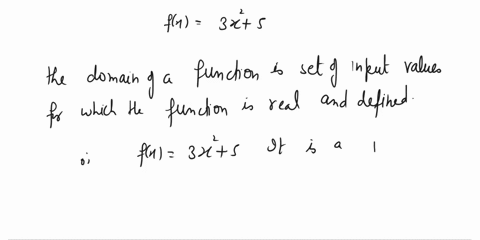 f(x) = 3x²+5
the domain of a function is set of input values
for which the function is real and defined.
f(x) = 3x²+5 It is a